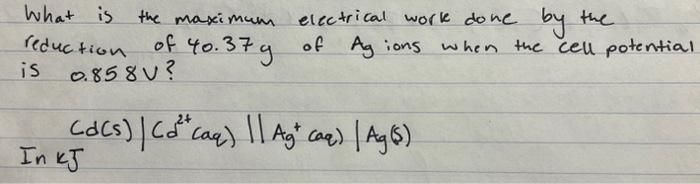 What is the maximum electrical work done by the
reduction of 40.37g of Ag ions when the cell potential
is 0.858V?
Cd(s) | Cd²⁺(aq) || Ag⁺(aq) | Ag(s)
In kJ